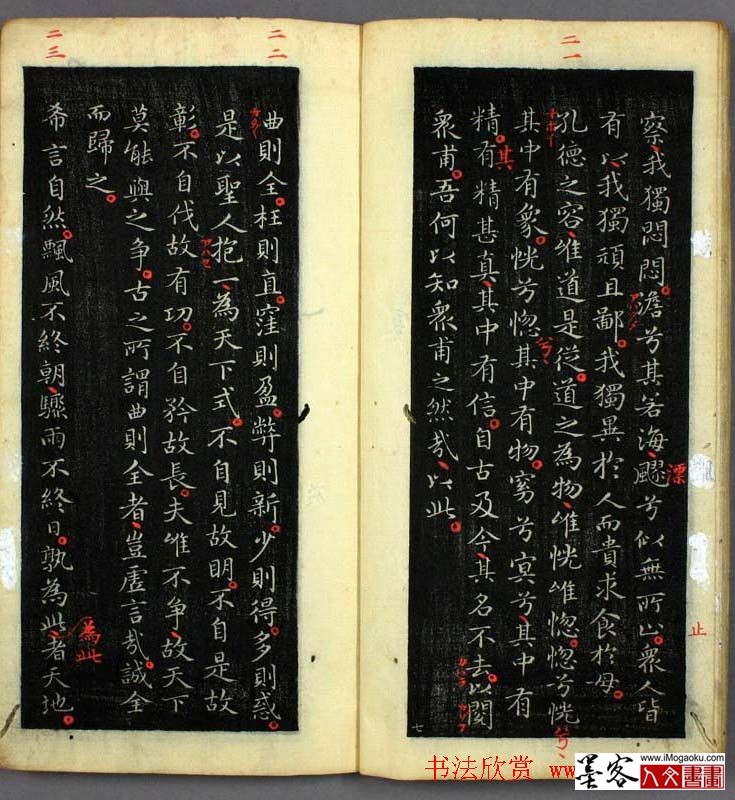 二一
察我獨悶悶澹兮其若海飂兮似無所止衆人皆
漂
止
有以我獨頑且鄙我獨異於人而貴求食於母
孔德之容唯道是從道之為物唯恍唯惚惚兮恍
兮
兮
其中有象恍兮惚其中有物窈兮冥兮其中有
其
精有精甚真其中有信自古及今其名不去以閱
衆甫吾何以知衆甫之然哉以此
七
二二
曲則全枉則直窪則盈弊則新少則得多則惑
是以聖人抱一為天下式不自見故明不自是故
彰不自伐故有功不自矜故長夫唯不争故天下
莫能與之争古之所謂曲則全者豈虛言哉誠全
而歸之
二三
希言自然飄風不終朝驟雨不終日孰為此者天地
為此
书法欣赏 www
墨客
www.iMogaoku.com
人文書畫